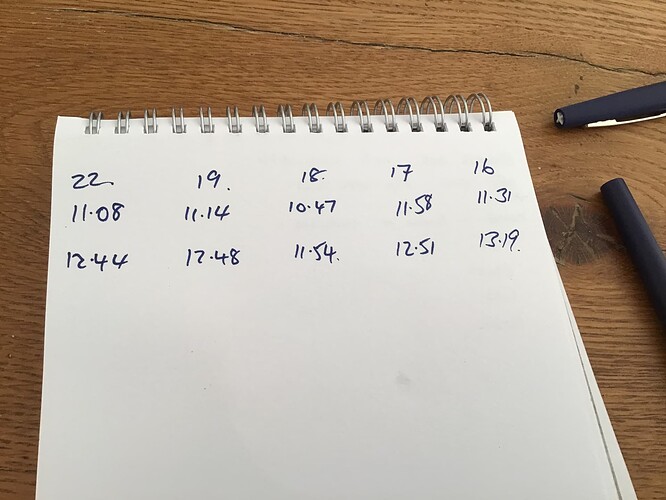 22 19. 18. 17 16
11.08 11.14 10.47 11.58 11.31
12.44 12.48 11.54. 12.51 13.19.